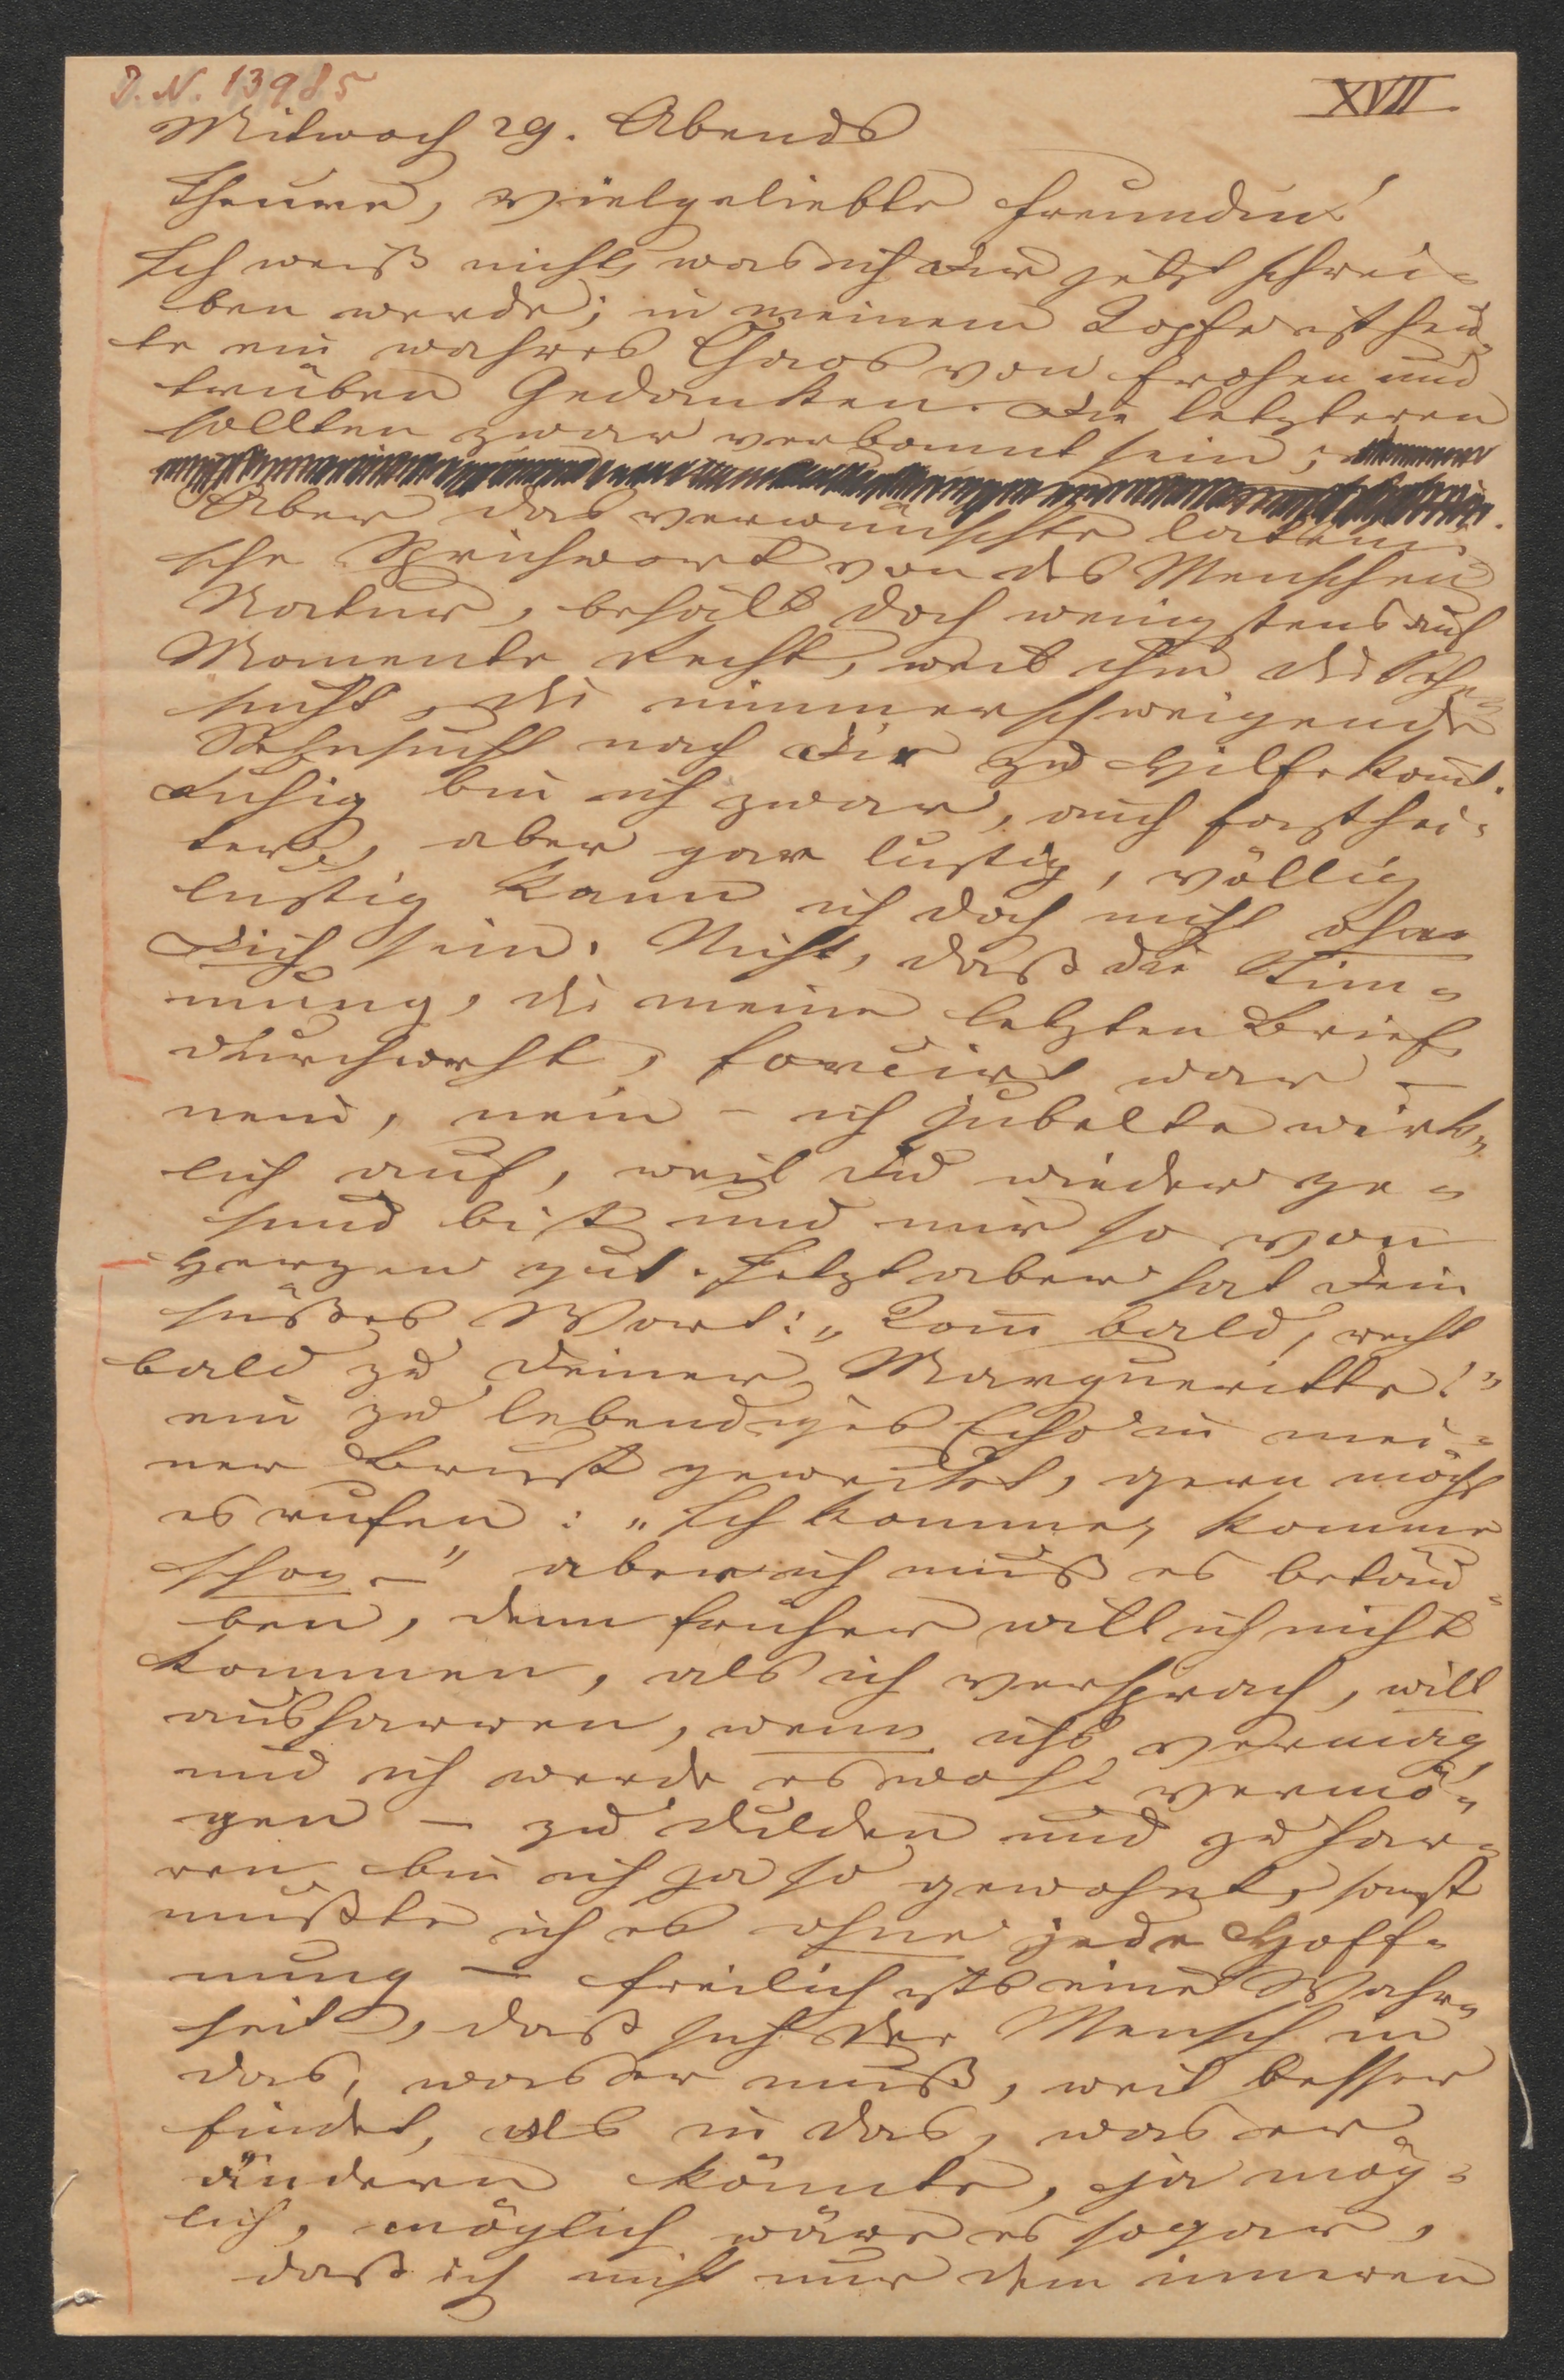 J. N. 13985
XVII
Mitwoch 29. Abends
Theure, vielgeliebte Freundin!
Ich weiß nicht, was ich Dir jetzt schrei-
ben werde; in meinem Kopfe ist heu-
te ein wahres Chaos von frohen und
trüben Gedanken. Die letzteren
sollten zwar verbannt sein;
Aber das verwünschte lateini-
sche Sprichwort von des Menschen
Natur, behält doch wenigstens auf
Momente Recht, weil ihm die Sehn-
sucht, die nimmerschweigende
Sehnsucht nach Dir zu Hilfe komt.
Ruhig bin ich zwar, auch fast hei-
ter, aber gar lustig, völlig
lustig kann ich doch nicht ohne
Dich sein. Nicht, daß die Stim-
mung, die meine letzten Brief
durchweht, forcirt war –
nein, nein – ich jubelte wirk-
lich auf, weil Du wieder ge-
sund bist und mir so von
Herzen gut. Jetzt aber hat Dein
süßes Wort: „Kom bald, recht
bald zu Deiner Margueritte!"
ein zu lebendiges Echo in mei-
ner Brust geweckt, gern möcht
es rufen: „Ich komme, komme
schon –" aber ich muß es betäu-
ben, denn früher will ich nicht
kommen, als ich versprach, will
ausharren, wenn ichs vermag
und ich werde es wohl vermö-
gen – zu dulden und zu har-
ren bin ich ja so gewohnt, sonst
mußte ich es ohne jede Hoff-
nung – freilich ists eine Wahr-
heit, daß sich der Mensch in
das, was er muß, weit besser
findet, als in das, was er
ändern könnte, ja mög-
lich, möglich wäre es sogar,
daß ich nicht nur dem inneren